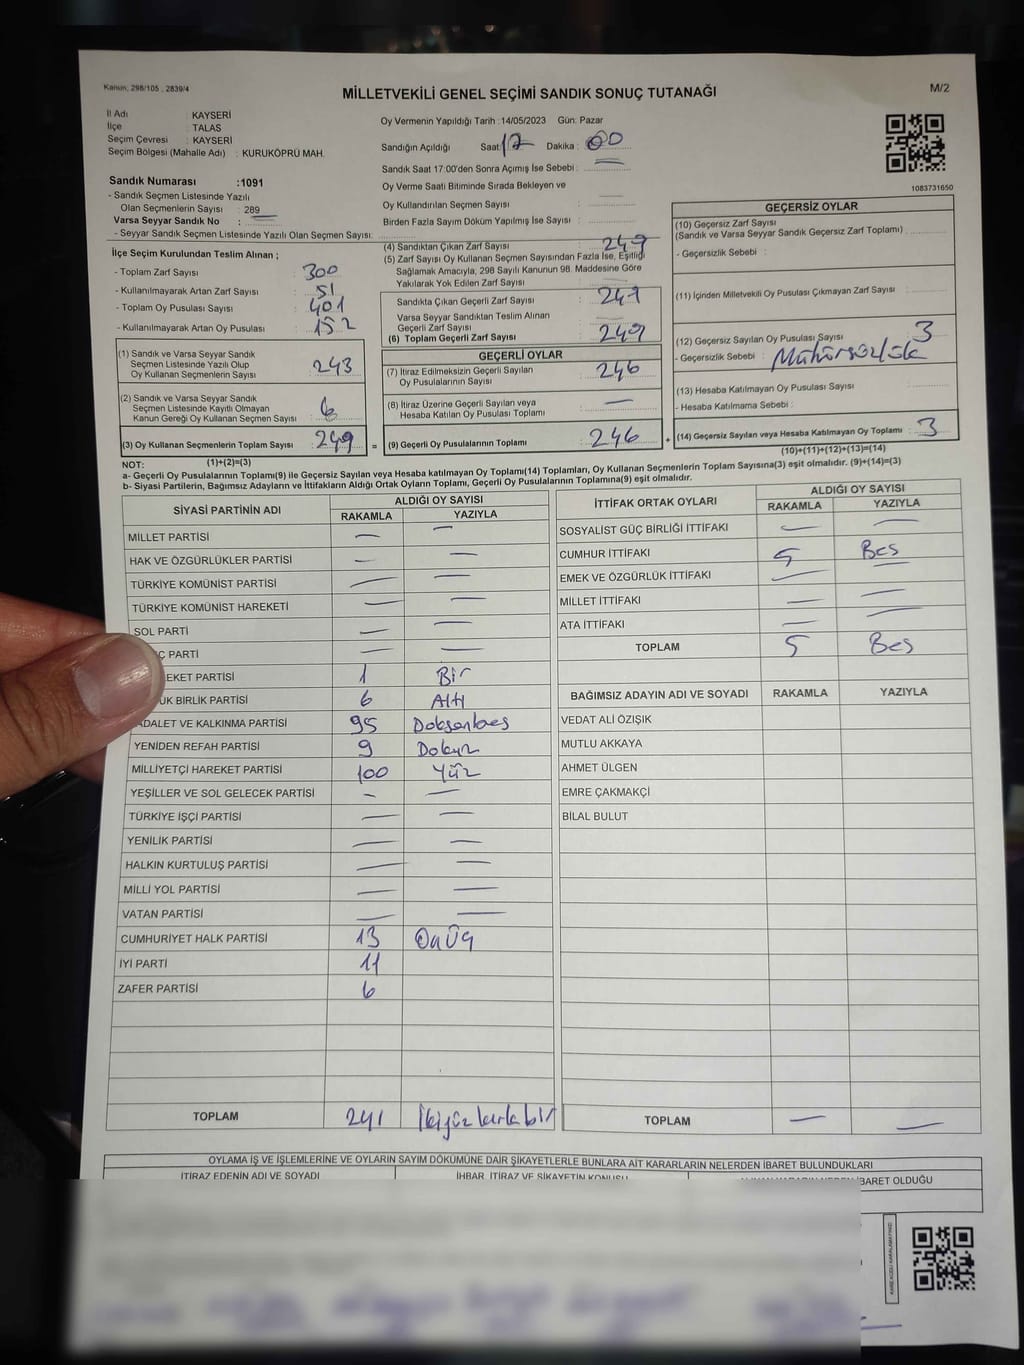 Kanun: 298/105 , 2839/4
MİLLETVEKİLİ GENEL SEÇİMİ SANDIK SONUÇ TUTANAĞI
M/2
İl Adı : KAYSERİ
İlçe : TALAS
Seçim Çevresi : KAYSERİ
Seçim Bölgesi (Mahalle Adı) : KURUKÖPRÜ MAH.
Sandık Numarası :1091
- Sandık Seçmen Listesinde Yazılı
Olan Seçmenlerin Sayısı : 289
Varsa Seyyar Sandık No : —
- Seyyar Sandık Seçmen Listesinde Yazılı Olan Seçmen Sayısı:
Oy Vermenin Yapıldığı Tarih :14/05/2023 Gün: Pazar
Sandığın Açıldığı Saat: 17 Dakika : 00
Sandık Saat 17:00'den Sonra Açımış İse Sebebi :
Oy Verme Saati Bitiminde Sırada Bekleyen ve
Oy Kullandırılan Seçmen Sayısı :
Birden Fazla Sayım Döküm Yapılmış İse Sayısı :
1083731650
İlçe Seçim Kurulundan Teslim Alınan ;
- Toplam Zarf Sayısı : 300
- Kullanılmayarak Artan Zarf Sayısı : 51
- Toplam Oy Pusulası Sayısı : 401
- Kullanılmayarak Artan Oy Pusulası : 152
(1) Sandık ve Varsa Seyyar Sandık
Seçmen Listesinde Yazılı Olup
Oy Kullanan Seçmenlerin Sayısı : 243
(2) Sandık ve Varsa Seyyar Sandık
Seçmen Listesinde Kayıtlı Olmayan
Kanun Gereği Oy Kullanan Seçmen Sayısı : 6
(3) Oy Kullanan Seçmenlerin Toplam Sayısı : 249 =
(1)+(2)=(3)
(4) Sandıktan Çıkan Zarf Sayısı : 249
(5) Zarf Sayısı Oy Kullanan Seçmen Sayısından Fazla İse, Eşitliği
Sağlamak Amacıyla, 298 Sayılı Kanunun 98. Maddesine Göre
Yakılarak Yok Edilen Zarf Sayısı :
Sandıkta Çıkan Geçerli Zarf Sayısı : 249
Varsa Seyyar Sandıktan Teslim Alınan
Geçerli Zarf Sayısı :
(6) Toplam Geçerli Zarf Sayısı : 249
GEÇERLİ OYLAR
(7) İtiraz Edilmeksizin Geçerli Sayılan
Oy Pusulalarının Sayısı : 246
(8) İtiraz Üzerine Geçerli Sayılan veya
Hesaba Katılan Oy Pusulası Toplamı : —
(9) Geçerli Oy Pusulalarının Toplamı : 246 +
GEÇERSİZ OYLAR
(10) Geçersiz Zarf Sayısı
(Sandık ve Varsa Seyyar Sandık Geçersiz Zarf Toplamı) :
- Geçersizlik Sebebi :
(11) İçinden Milletvekili Oy Pusulası Çıkmayan Zarf Sayısı :
(12) Geçersiz Sayılan Oy Pusulası Sayısı : 3
- Geçersizlik Sebebi : Mühürsüzlük
(13) Hesaba Katılmayan Oy Pusulası Sayısı :
- Hesaba Katılmama Sebebi :
(14) Geçersiz Sayılan veya Hesaba Katılmayan Oy Toplamı : 3
(10)+(11)+(12)+(13)=(14)
NOT:
a- Geçerli Oy Pusulalarının Toplamı(9) ile Geçersiz Sayılan veya Hesaba katılmayan Oy Toplamı(14) Toplamları, Oy Kullanan Seçmenlerin Toplam Sayısına(3) eşit olmalıdır. (9)+(14)=(3)
b- Siyasi Partilerin, Bağımsız Adayların ve İttifakların Aldığı Ortak Oyların Toplamı, Geçerli Oy Pusulalarının Toplamına(9) eşit olmalıdır.
SİYASİ PARTİNİN ADI ALDIĞI OY SAYISI
RAKAMLA YAZIYLA
MİLLET PARTİSİ — —
HAK VE ÖZGÜRLÜKLER PARTİSİ — —
TÜRKİYE KOMÜNİST PARTİSİ — —
TÜRKİYE KOMÜNİST HAREKETİ — —
SOL PARTİ — —
Ç PARTİ — —
EKET PARTİSİ 1 Bir
ÜK BİRLİK PARTİSİ 6 Altı
ADALET VE KALKINMA PARTİSİ 95 Doksanbeş
YENİDEN REFAH PARTİSİ 9 Dokuz
MİLLİYETÇİ HAREKET PARTİSİ 100 Yüz
YEŞİLLER VE SOL GELECEK PARTİSİ — —
TÜRKİYE İŞÇİ PARTİSİ — —
YENİLİK PARTİSİ — —
HALKIN KURTULUŞ PARTİSİ — —
MİLLİ YOL PARTİSİ — —
VATAN PARTİSİ — —
CUMHURİYET HALK PARTİSİ 13 OnÜç
İYİ PARTİ 11
ZAFER PARTİSİ 6
TOPLAM 241 İkiyüzkırkbir
İTTİFAK ORTAK OYLARI ALDIĞI OY SAYISI
RAKAMLA YAZIYLA
SOSYALİST GÜÇ BİRLİĞİ İTTİFAKI — —
CUMHUR İTTİFAKI 5 Beş
EMEK VE ÖZGÜRLÜK İTTİFAKI — —
MİLLET İTTİFAKI — —
ATA İTTİFAKI — —
TOPLAM 5 Beş
BAĞIMSIZ ADAYIN ADI VE SOYADI RAKAMLA YAZIYLA
VEDAT ALİ ÖZIŞIK
MUTLU AKKAYA
AHMET ÜLGEN
EMRE ÇAKMAKÇİ
BİLAL BULUT
TOPLAM — —
OYLAMA İŞ VE İŞLEMLERİNE VE OYLARIN SAYIM DÖKÜMÜNE DAİR ŞİKAYETLERLE BUNLARA AİT KARARLARIN NELERDEN İBARET BULUNDUKLARI
İTİRAZ EDENİN ADI VE SOYADI İHBAR, İTİRAZ VE ŞİKAYETİN KONUSU İBARET OLDUĞU